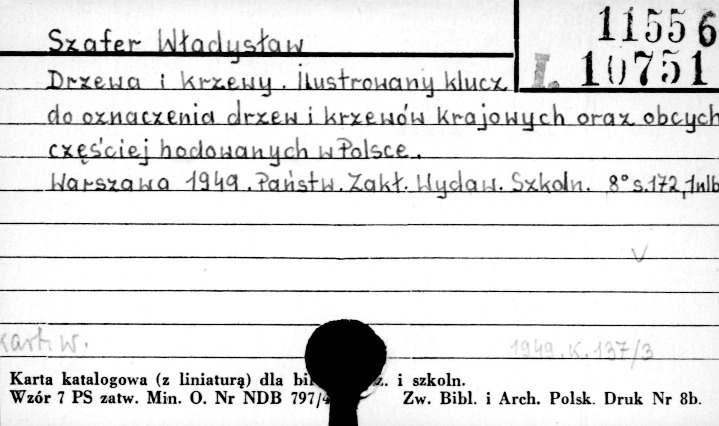 11556
Szafer Władysław
I. 10751
Drzewa i krzewy. Ilustrowany klucz
do oznaczenia drzew i krzewów krajowych oraz obcych
częściej hodowanych w Polsce.
Warszawa 1949. Państw. Zakł. Wydaw. Szkoln. 8° s.172,1nlb
kart. w.
1949.K.137/3
Karta katalogowa (z liniaturą) dla i szkoln.
Wzór 7 PS zatw. Min. O. Nr NDB 797/4 Zw. Bibl. i Arch. Polsk. Druk Nr 8b.